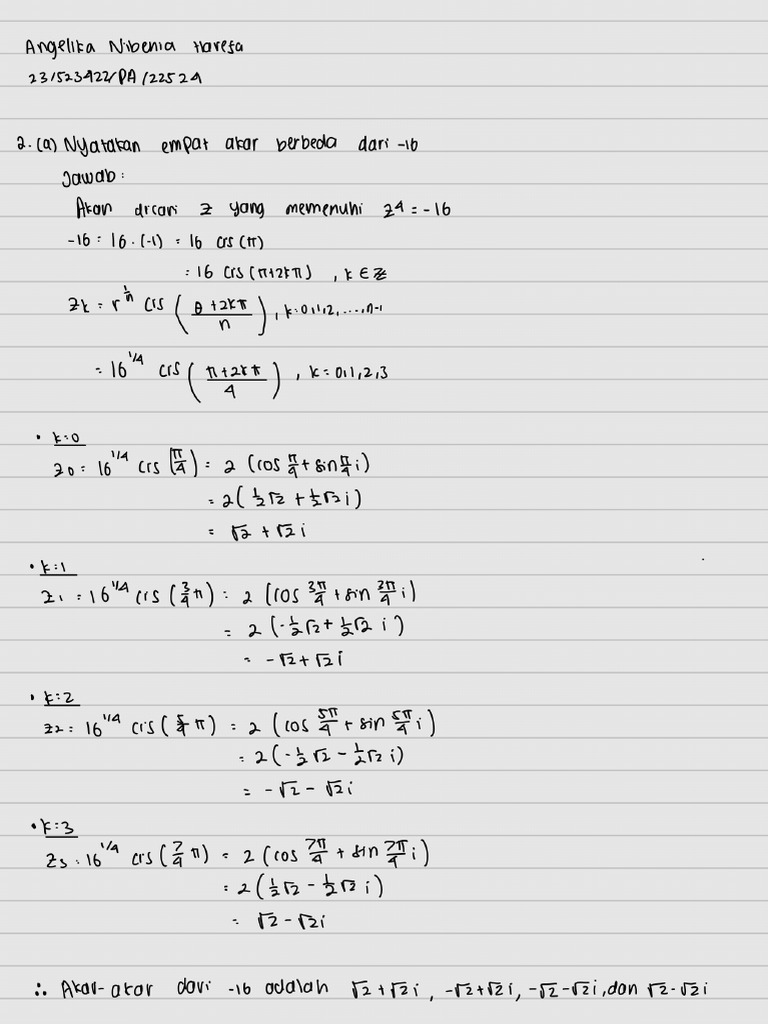 Angelika Nibenia Harefa
23/523422/PA/22524
2. (a) Nyatakan empat akar berbeda dari -16
Jawab:
Akan dicari z yang memenuhi z⁴ = -16
-16 = 16 · (-1) = 16 cis (π)
= 16 cis (π+2kπ) , k ∈ ℤ
zk = r^(1/n) cis ((θ + 2kπ)/n), k=0,1,2,...,n-1
= 16^(1/4) cis ((π+2kπ)/4) , k = 0,1,2,3
• k=0
z0 = 16^(1/4) cis (π/4) = 2 (cos π/4 + sin π/4 i)
= 2 (1/2 √2 + 1/2 √2 i)
= √2 + √2 i
• k=1
z1 = 16^(1/4) cis (3/4 π) = 2 (cos 3π/4 + sin 3π/4 i)
= 2 (-1/2 √2 + 1/2 √2 i)
= -√2 + √2 i
• k=2
z2 = 16^(1/4) cis (5/4 π) = 2 (cos 5π/4 + sin 5π/4 i)
= 2 (-1/2 √2 - 1/2 √2 i)
= -√2 - √2 i
• k=3
z3 = 16^(1/4) cis (7/4 π) = 2 (cos 7π/4 + sin 7π/4 i)
= 2 (1/2 √2 - 1/2 √2 i)
= √2 - √2 i
∴ Akar-akar dari -16 adalah √2 + √2 i , -√2 + √2 i , -√2 - √2 i , dan √2 - √2 i